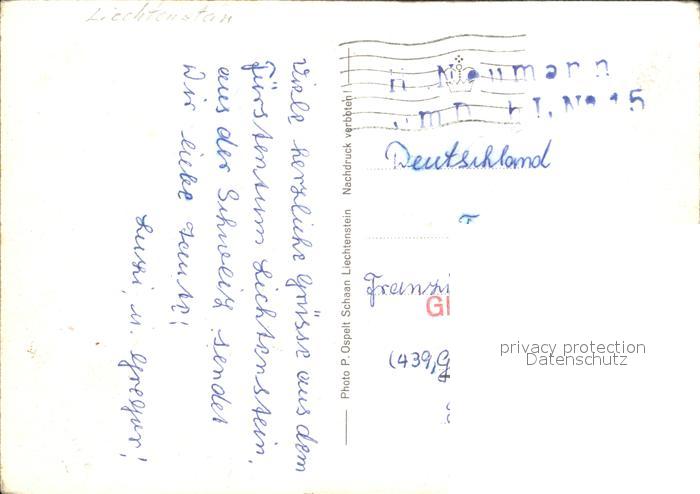 Liechtenstan
Viele herzliche Grüsse aus dem
Fürstentum Lichtenstein.
aus der Schweiz sendet
Dir liebe Tante!
Luzi u. Gregor!
Photo P. Ospelt Schaan Liechtenstein Nachdruck verboten!
H. Neumann
Deutschland
Franzi
Gl
(439, G
privacy protection
Datenschutz